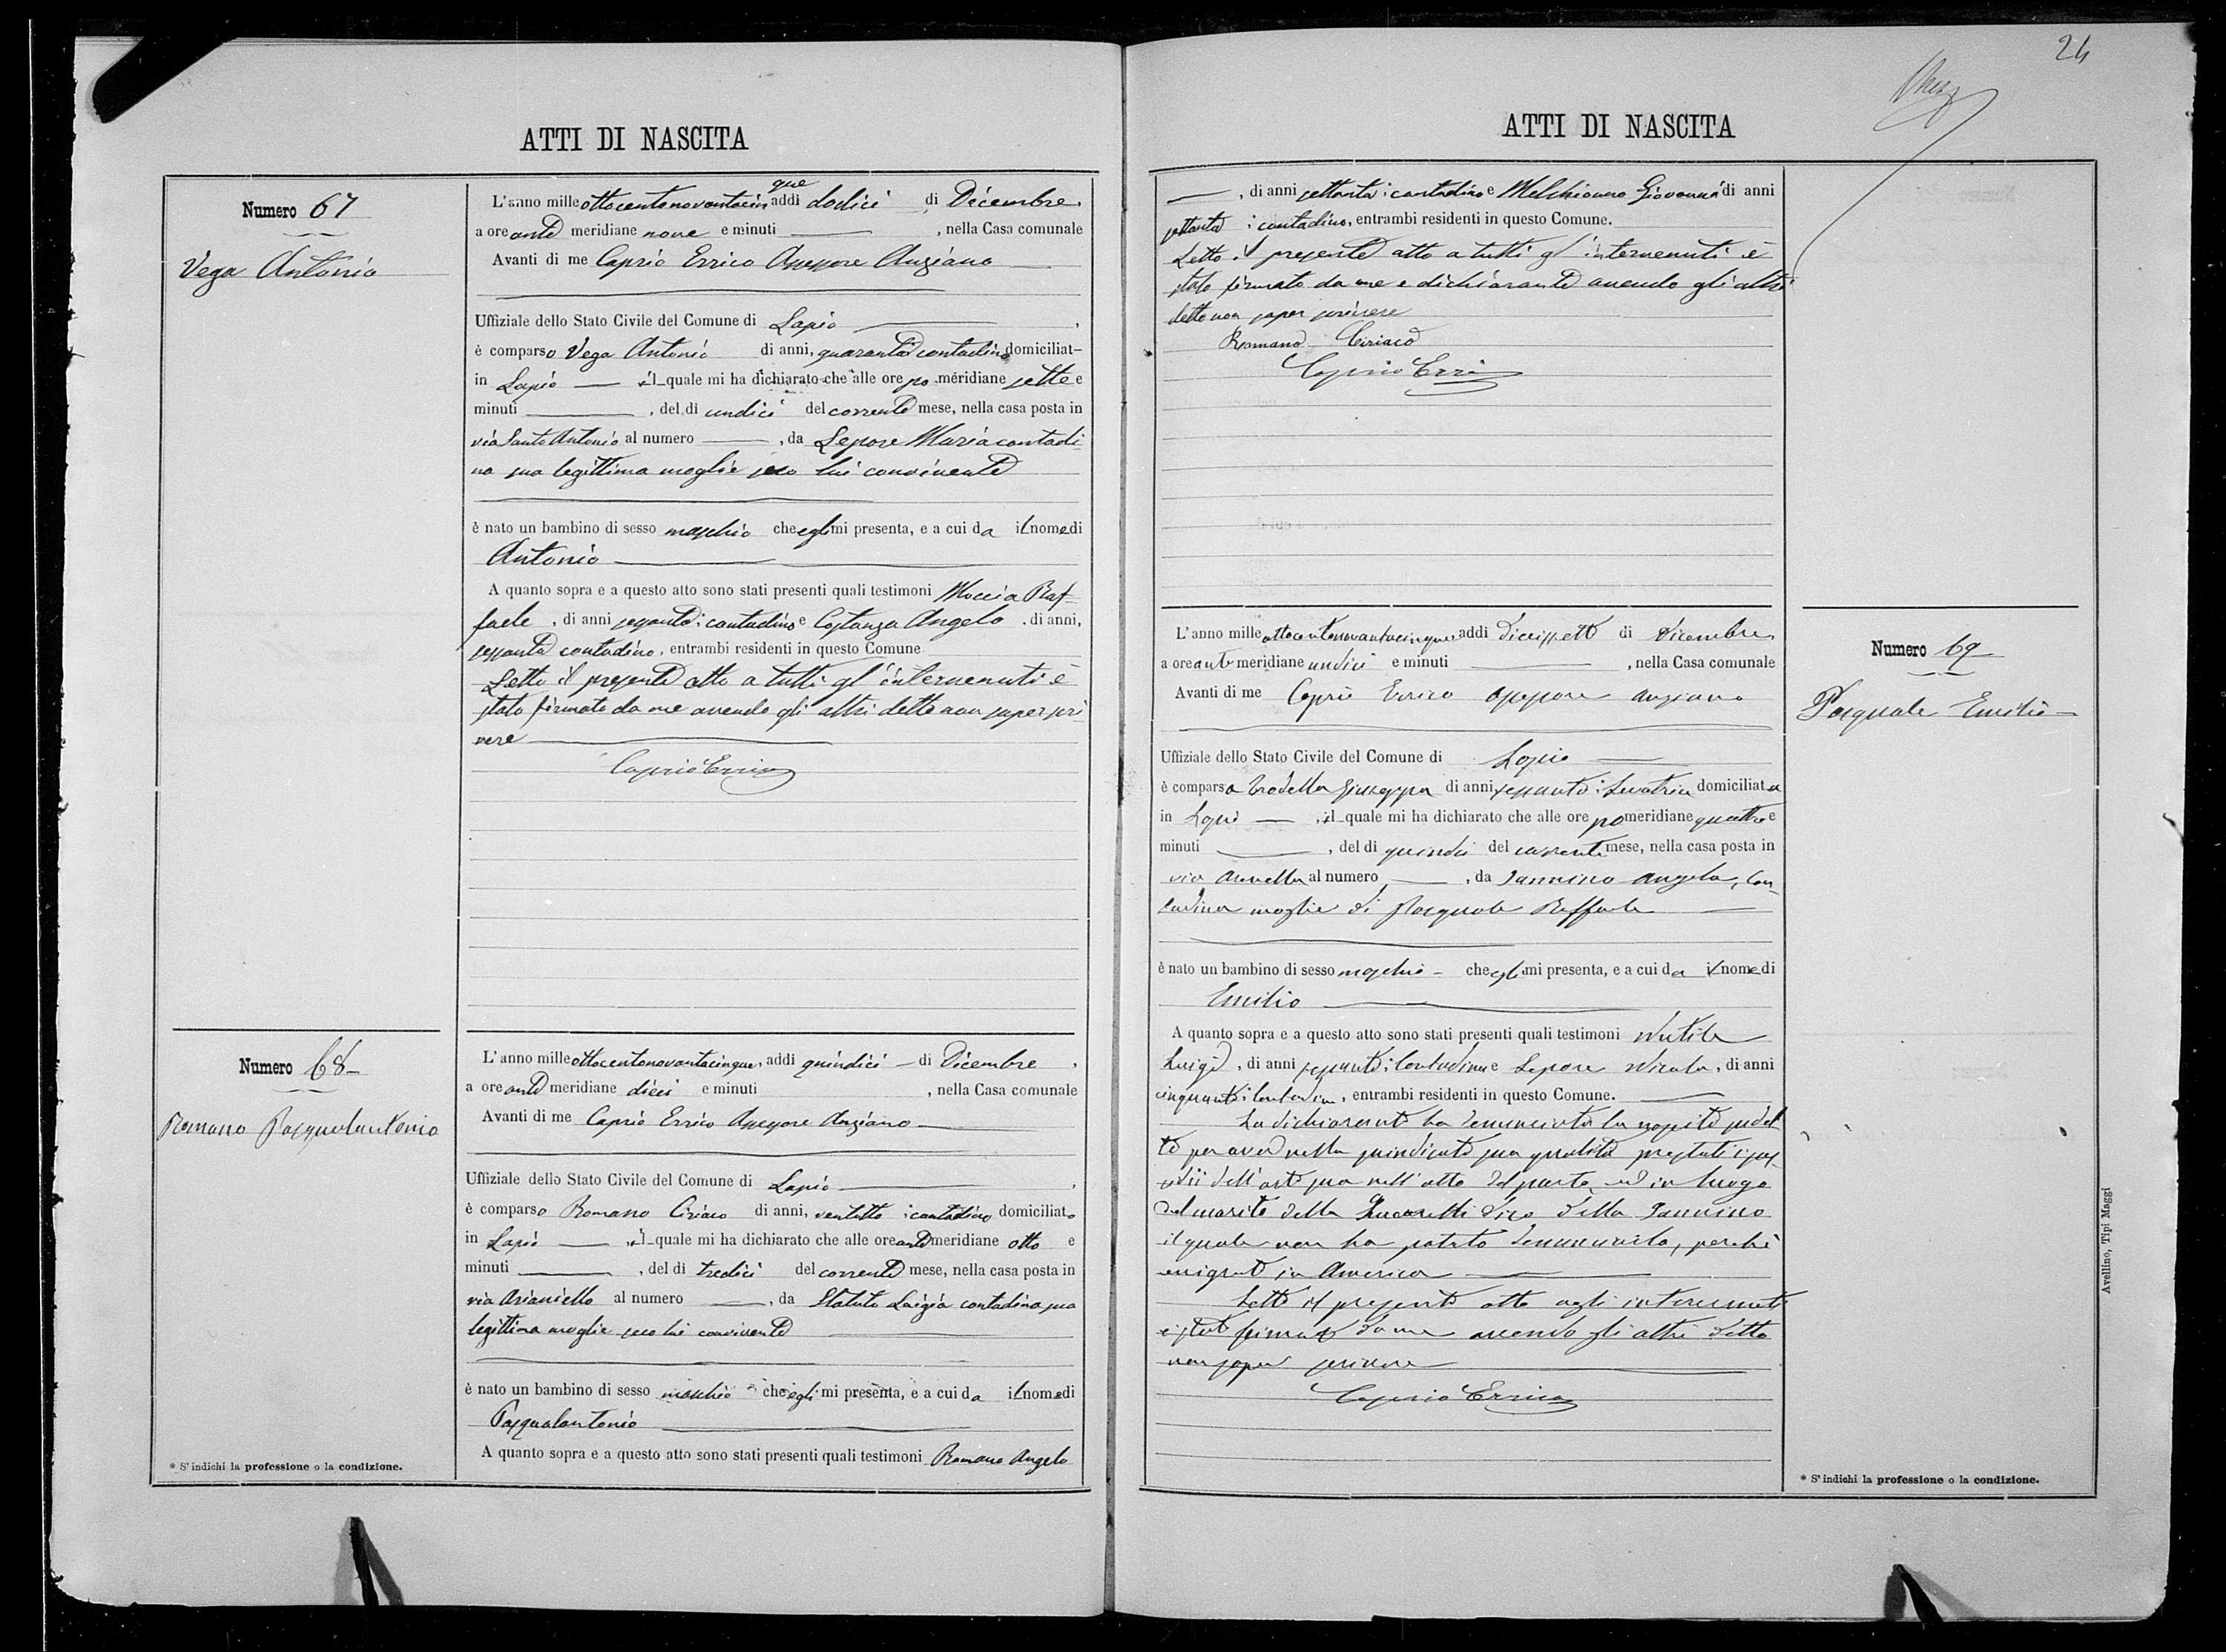 ATTI DI NASCITA
Numero 67
Vega Antonio
L'anno mille ottocentonovantacinque addi dodici di Decembre
a ore ante meridiane nove e minuti , nella Casa comunale
Avanti di me Caprio Errico Assessore Anziano
Uffiziale dello Stato Civile del Comune di Lapio
è comparso Vega Antonio di anni, quaranta contadino domiciliat-
in Lapio il quale mi ha dichiarato che alle ore po meridiane sette e
minuti , del dì undici del corrente mese, nella casa posta in
via Santo Antonio al numero , da Lepore Maria contadi-
na sua legittima moglie seco lui convivente
è nato un bambino di sesso maschio che egli mi presenta, e a cui da il nome di
Antonio
A quanto sopra e a questo atto sono stati presenti quali testimoni Moccia Raf-
faele , di anni sessanta: contadino e Costanza Angelo , di anni,
sessanta contadino, entrambi residenti in questo Comune
Letto il presente atto a tutti gl'intervenuti è
stato firmato da me avendo gli altri detto non saper scri
vere
Caprio Errico
Numero 68
Romano Pasqualantonio
L'anno mille ottocentonovantacinque, addi quindici di Decembre
a ore ante meridiane dieci e minuti , nella Casa comunale
Avanti di me Caprio Errico Assessore Anziano
Uffiziale dello Stato Civile del Comune di Lapio
è comparso Romano Ciriaco di anni, ventotto: contadino domiciliato
in Lapio il quale mi ha dichiarato che alle ore ante meridiane otto e
minuti , del di tredici del corrente mese, nella casa posta in
via Arianiello al numero , da Statuto Luigia contadina sua
legittima moglie seco lui convivente
è nato un bambino di sesso maschio che egli mi presenta, e a cui da il nome di
Pasqualantonio
A quanto sopra e a questo atto sono stati presenti quali testimoni Romano Angelo
* S'indichi la professione o la condizione.
24
ATTI DI NASCITA
, di anni settanta: contadino e Melchionno Giovanni di anni
settanta : contadino, entrambi residenti in questo Comune.
Letto il presente atto a tutti gl'intervenuti è
stato firmato da me e dichiarante avendo gli altri
detto non saper scrivere
Romano Ciriaco
Caprio Erri
Numero 69
Pasquale Emilio
L'anno mille ottocentonovantacinque addi diciissette di Dicembre
a ore ante meridiane undici e minuti , nella Casa comunale
Avanti di me Caprio Errico assessore anziano
Uffiziale dello Stato Civile del Comune di Lapio
è comparsa Giuseppa di anni sessanta: Levatrice domiciliata
in Lapio , il quale mi ha dichiarato che alle ore pomeridiane quattro e
minuti , del di quindici del corrente mese, nella casa posta in
via al numero , da Iannino Angela, Con-
tadina moglie di Pasquale Raffaele
è nato un bambino di sesso maschio che egli mi presenta, e a cui da il nome di
Emilio
A quanto sopra e a questo atto sono stati presenti quali testimoni
Luigi , di anni sessanta: Contadino e Lepore Nicola, di anni
cinquanta: Contadino, entrambi residenti in questo Comune.
La dichiarante ha denunciato la nascita sudet
ta per aver nella suindicata sua qualità prestati i sus-
sidii dell'arte sua nell'atto del parto, ed in luogo
del marito della dico della Iannino
il quale non ha potuto denunciarla, perchè
emigrato in America
Letto il presente atto agli intervenuti
è stato firmato da me avendo gli altri detto
non saper scrivere
Caprio Errico
* S'indichi la professione o la condizione.
Avellino, Tipi Maggi